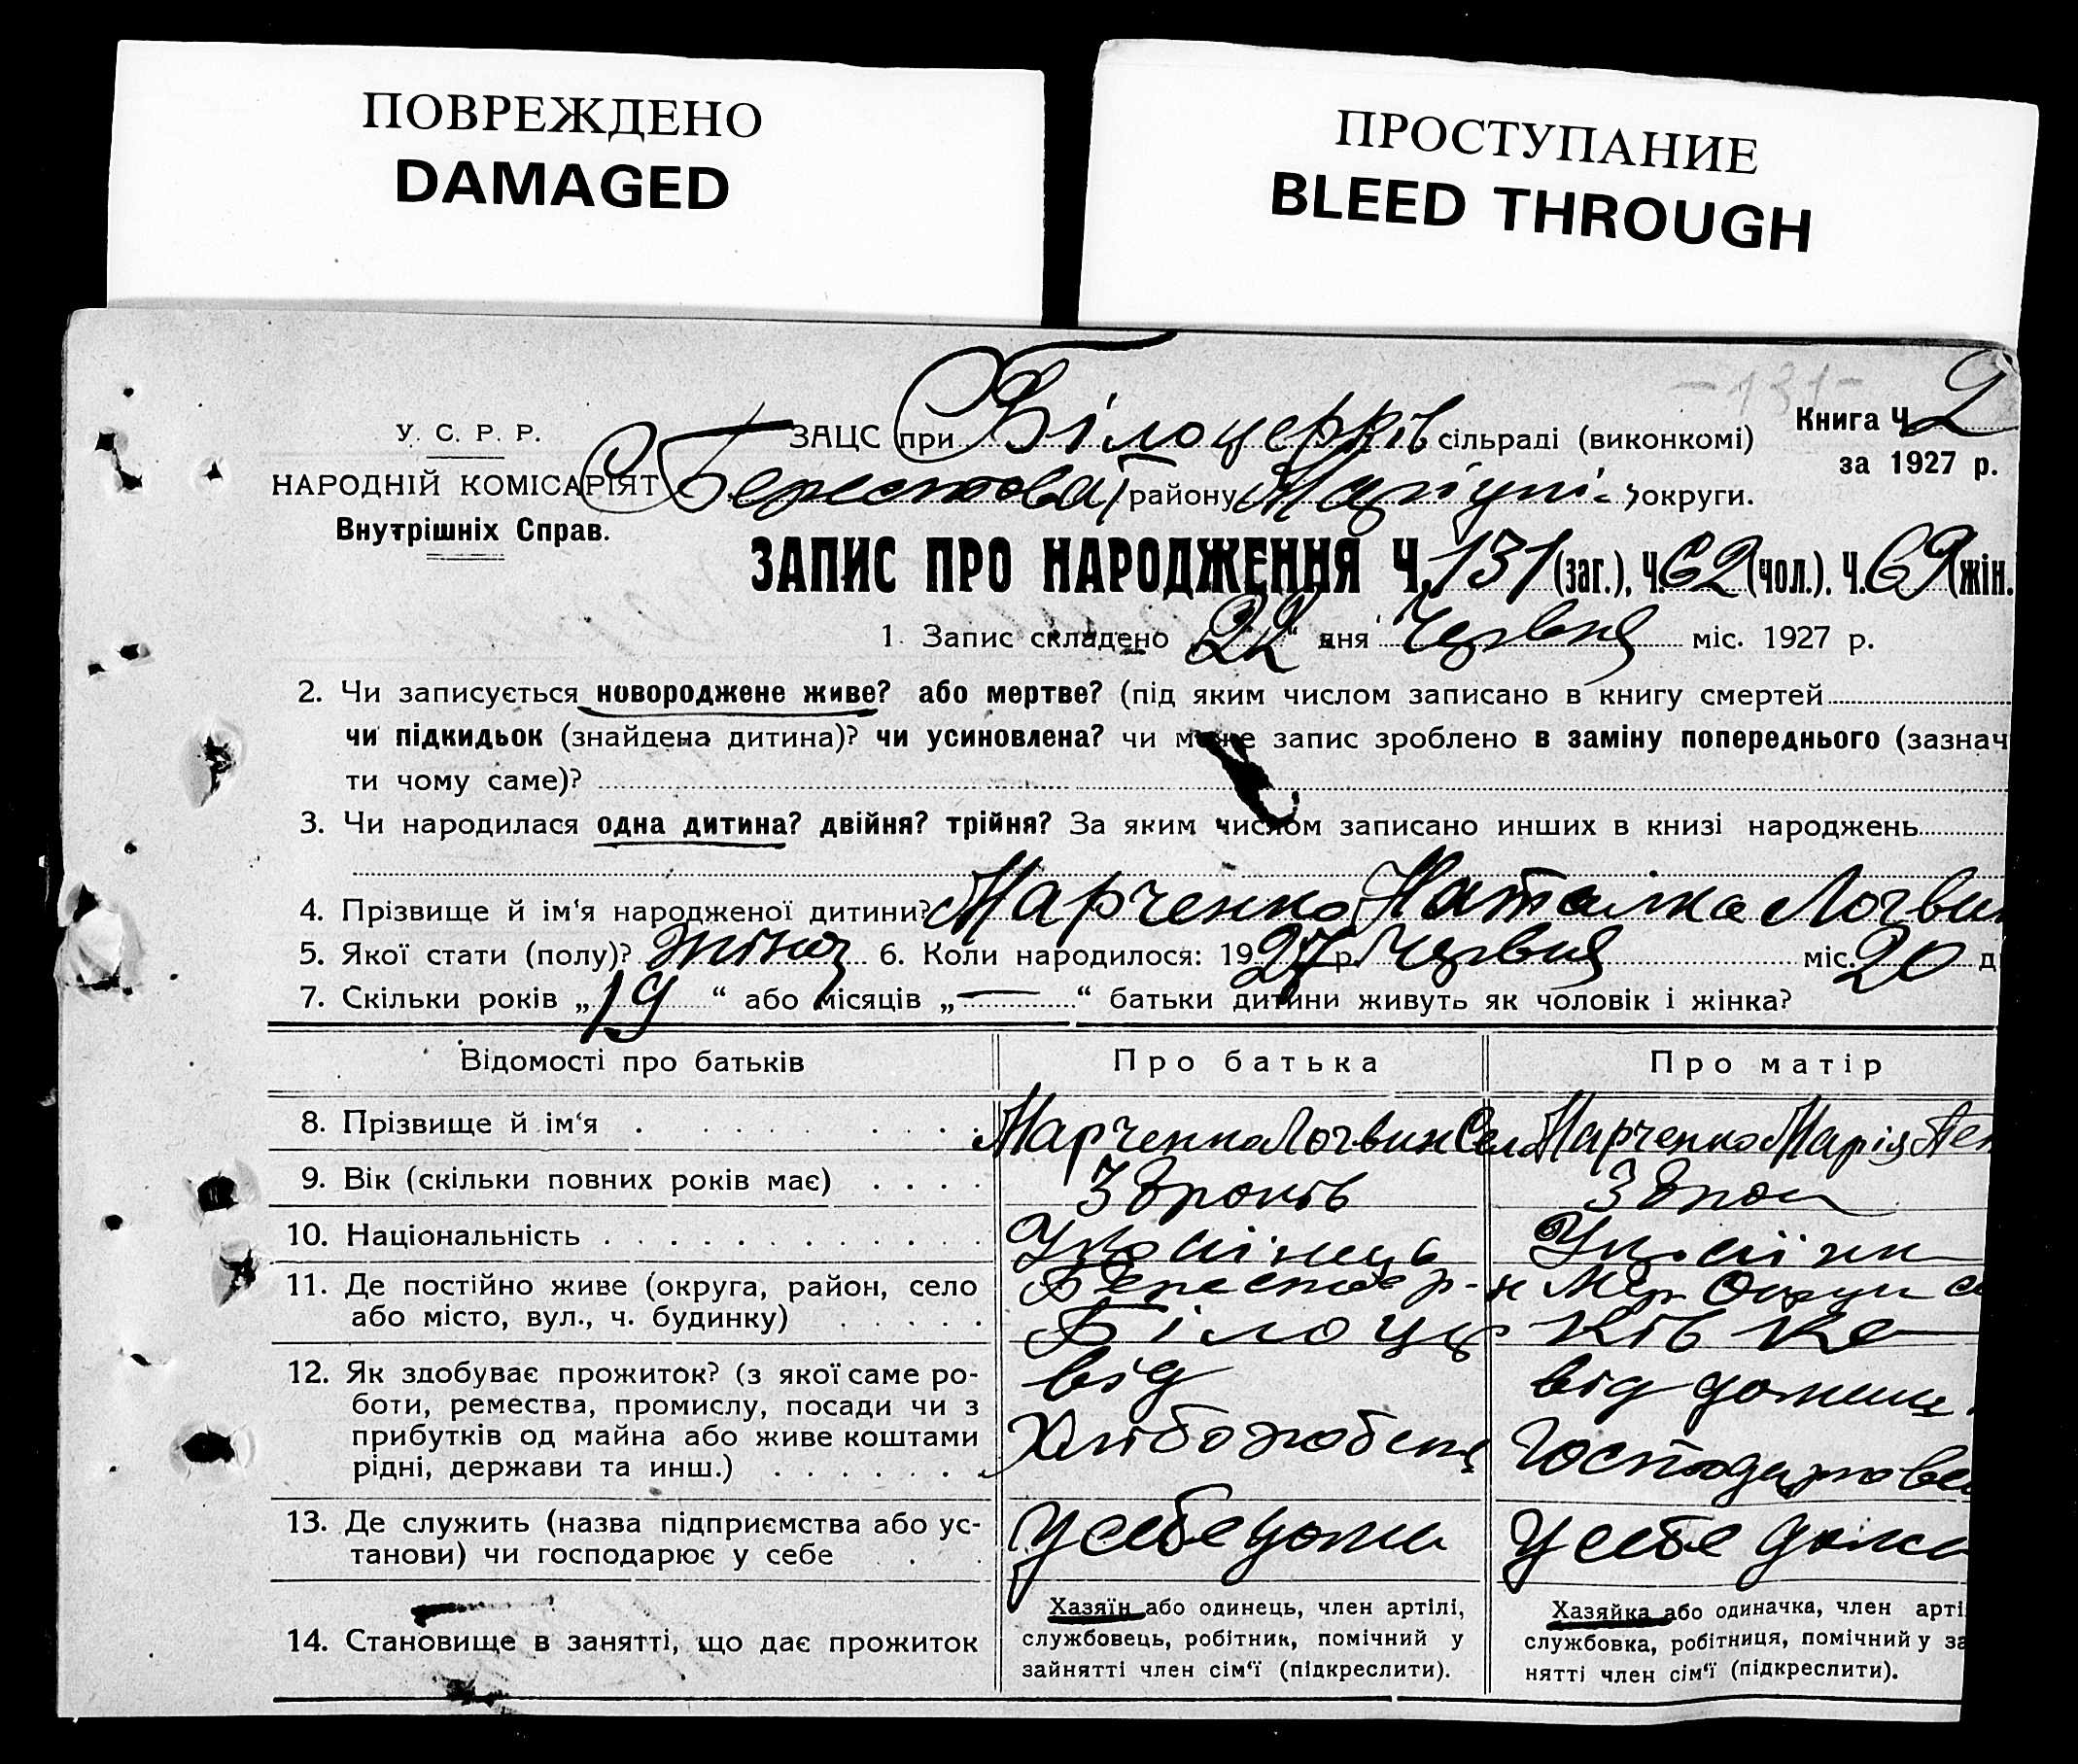 ПОВРЕЖДЕНО
DAMAGED
ПРОСТУПАНИЕ
BLEED THROUGH
-131-
У. С. Р. Р.
НАРОДНІЙ КОМІСАРІЯТ
Внутрішніх Справ.
Книга Ч. 2
за 1927 р.
ЗАЦС при Білоцерків сільраді (виконкомі)
Берестова району Маріупі- округи.
ЗАПИС ПРО НАРОДЖЕННЯ Ч. 131 (заг.), Ч. 62 (чол.). Ч. 69 (жін.
1. Запис складено „22“ дня Червня міс. 1927 р.
2. Чи записується новороджене живе? або мертве? (під яким числом записано в книгу смертей
чи підкидьок (знайдена дитина)? чи усиновлена? чи може запис зроблено в заміну попереднього (зазнач
ти чому саме)?
3. Чи народилася одна дитина? двійня? трійня? За яким числом записано инших в книзі народжень
4. Прізвище й ім‘я народженої дитини? Марченко Наталка Логвин
5. Якої стати (полу)? жіноч 6. Коли народилося: 1927 р. Червня міс. 20 д
7. Скільки років „19“ або місяців „—“ батьки дитини живуть як чоловік і жінка?
Відомості про батьків Про батька Про матір
8. Прізвище й ім‘я Марченко Логвин Марченко Марія
9. Вік (скільки повних років має) років
10. Національність Українець
11. Де постійно живе (округа, район, село Берестов р-н Мар Округи с
або місто, вул., ч. будинку) Білоцерківка
12. Як здобуває прожиток? (з якої саме ро- від від домашн.
боти, ремества, промислу, посади чи з Хлібо Господарства
прибутків од майна або живе коштами
рідні, держави та инш.)
13. Де служить (назва підприємства або ус- У себе дома У себе дома
танови) чи господарює у себе
14. Становище в занятті, що дає прожиток
Хазяїн або одинець, член артілі,
службовець, робітник, помічний у
зайнятті член сім‘ї (підкреслити).
Хазяйка або одиначка, член арті
службовка, робітниця, помічний у за
нятті член сім‘ї (підкреслити).